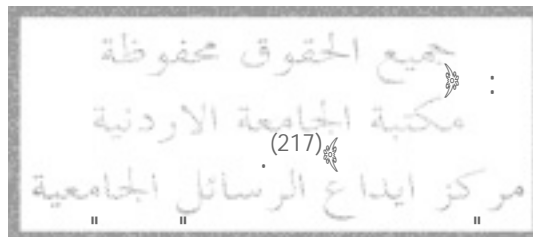 جميع الحقوق محفوظة
مكتبة الجامعة الاردنية
(217)
مركز ايداع الرسائل الجامعية